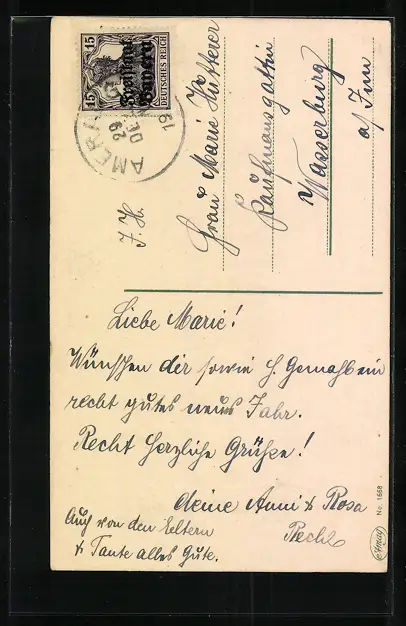 15 15
DEUTSCHES REICH
Freistaat
Bayern
AMERA
29
DE
19
I. H.
Frau Marie Hütterer
Kaufmannsgattin
Wasserburg
a/ Inn
Liebe Marie!
Wünschen dir sowie H. Gemahl ein
recht gutes neues Jahr.
Recht herzliche Grüße!
deine Anni & Rosa
Pechl
Auch von den Eltern
& Tante alles Gute.
No. 1668